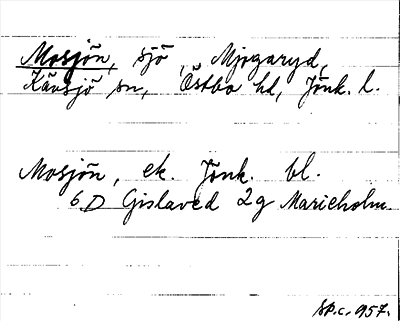 Mosjön, sjö, Mjogaryd,
Kävsjö sn, Östbo hd, Jönk. l.
Mosjön, ek. Jönk. bl.
6 D Gislaved 2g Marieholm.
SP.c. 957.